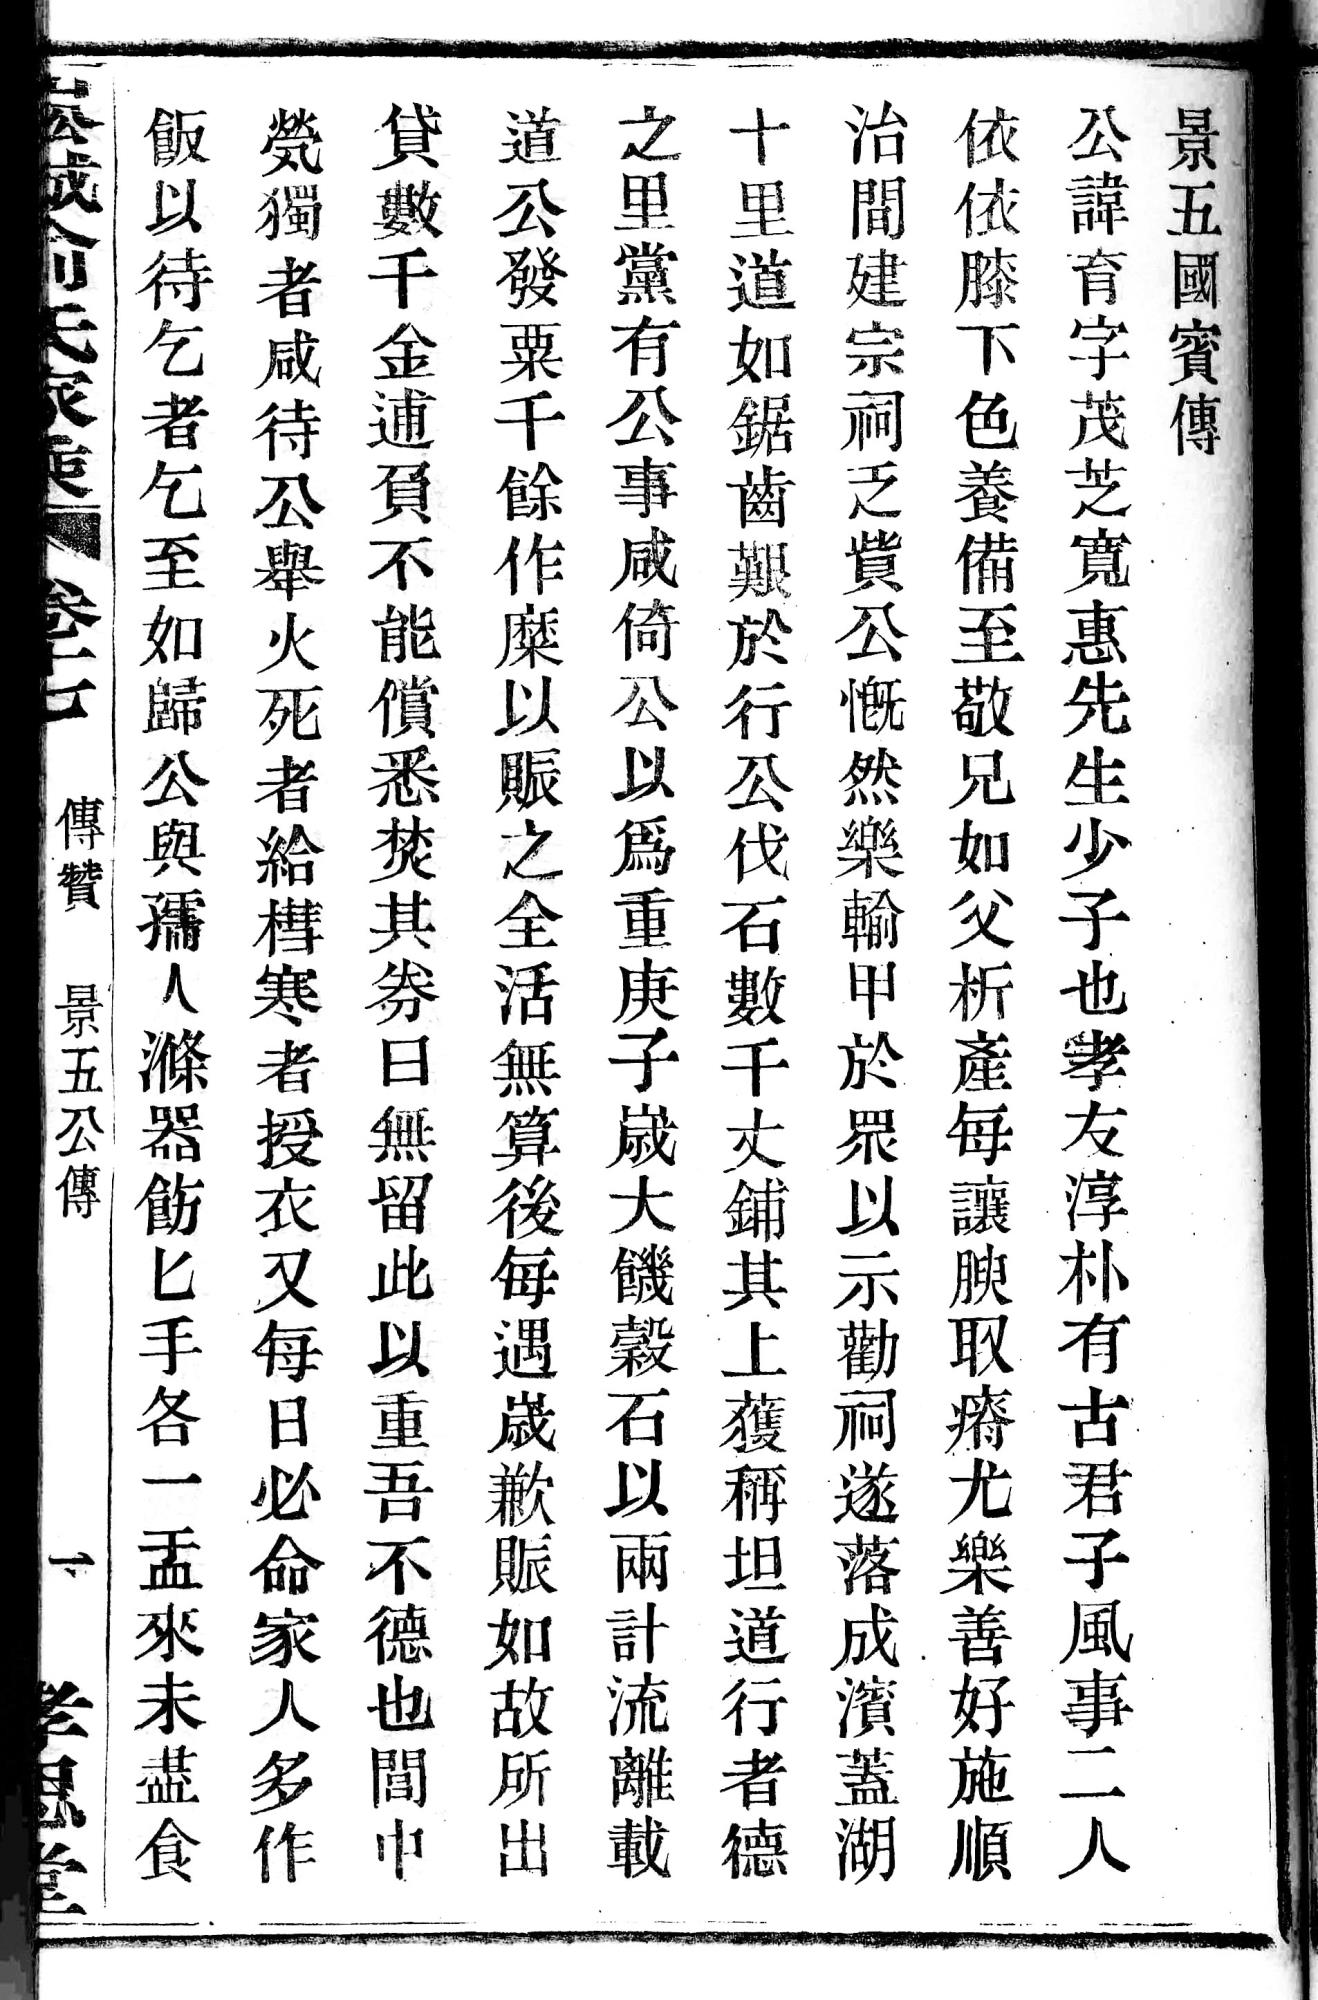 景五國賓傳
公諱育字茂芝寬惠先生少子也孝友淳朴有古君子風事二人
依依膝下色養備至敬兄如父析產每讓腴取瘠尤樂善好施順
治間建宗祠乏貲公慨然樂輸甲於眾以示勸祠遂落成濱蓋湖
十里道如鋸齒艱於行公伐石數千丈鋪其上獲稱坦道行者德
之里黨有公事咸倚公以爲重庚子歲大饑穀石以兩計流離載
道公發粟千餘作糜以賑之全活無算後每遇歲歉賑如故所出
貸數千金逋負不能償悉焚其券曰無留此以重吾不德也閭巾
煢獨者咸待公舉火死者給槥寒者授衣又每日必命家人多作
飯以待乞者乞至如歸公與孺人滌器飭匕手各一盂來未盡食
俞氏家乘
卷十七
傳贊
景五公傳
一
孝思堂